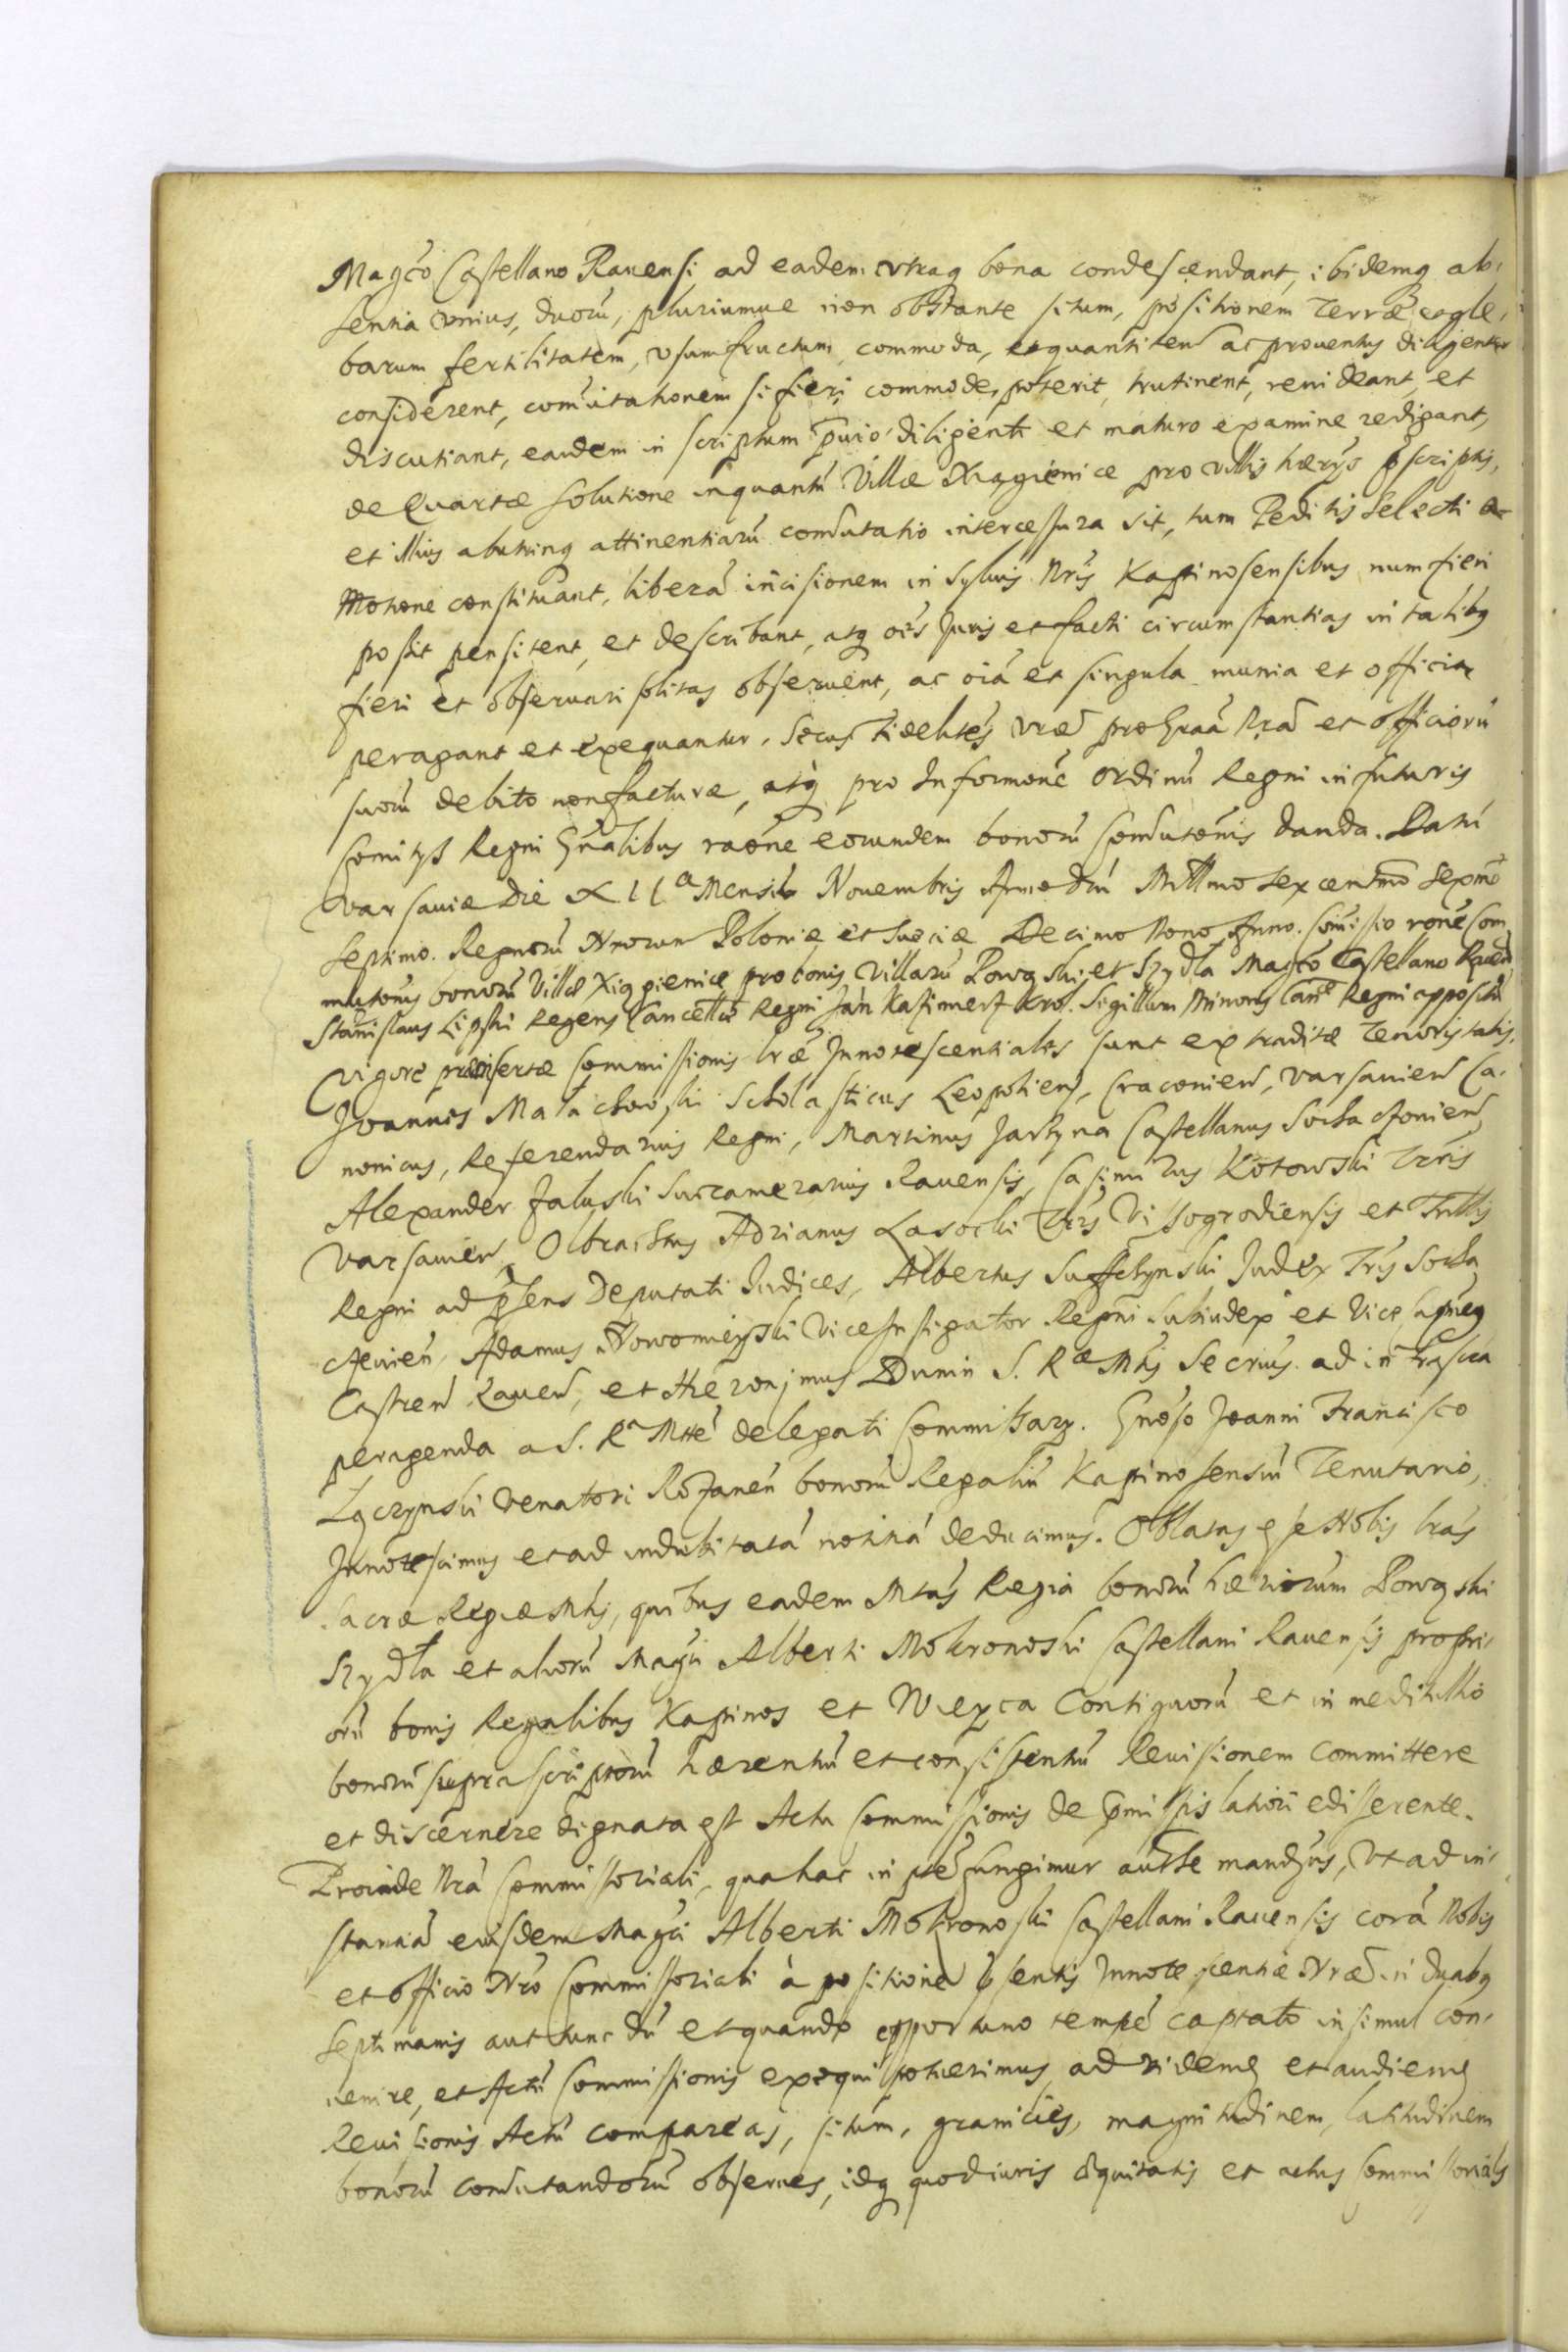 Magco Castellano Rauensi ad eadem vtraq bona condescendant, ibidemq ab,
sentia vnius, duorũ, pluriumue non obstante situm, positionem Terræ et gle,
barum fertilitatem, vsumfructum commoda, et quantitatem ac prouentus diligenter
considerent, comutationem si fieri commode poterit, trutinent, reuideant, et
discutiant, eandem in scriptum pũio diligenti et maturo examine redigant,
de Quartæ solutione inquantũ Villæ Xiągienice pro villis hærijs pscriptis,
et illius abuting attinentiarũ comutatio intercessura sit, tum Peditis Selecti
constituant, liberã incisionem in Syluis Nris Kapinosensibus num fieri
possit pensitent, et describant, atq oẽs Juris et facti circumstantias in talibq
fieri et obseruari solitas obseruent, ac oiã et singula munia et officia
peragant et exequantur. Secus fidelites vræ pro Graã Nrã et officiorũ
suorũ debito non facturæ, atq pro Informone Ordinũ Regni in futuris
Comitijs Regni Gnalibus raone eorundem bonorũ Comutonis danda. Datũ
Varsauiæ Die XII a Mensis Nouembris Anno Dni Millmo Sexcentmo Sexmo
Septimo. Regnorũ Nrorum Poloniæ et Sueciæ Decimo Nono Anno. Comissio rone Com
mutonis bonorũ Villæ Xiągienice pro bonis Villarũ Powązki et Szydła Magco Castellano Rauen
Stanislaus Lipski Regens Cancellæ Regni Jan Kazimierz Krol. Sigillum Minoris Canc Regni appositũ
Vigore præinsertæ Commissionis lræ Innotescentiales sunt extraditæ Tenoris talis.
Joannes Małachowski Scholasticus Leopolien, Cracouien, Varsauien Ca,
nonicus, Referendarius Regni, Martinus Jarzyna Castellanus Sochaczouien,
Alexander Załuski Succamerarius Rauensis, Casimirus Kotowski Trris
Varsauien, Olbrachtus Adrianus Lasocki Trris Vissogrodiensis et Trblis
Regni ad psens Deputati Iudices, Albertus Suffczynski Judex Tris Socha
czeuien, Adamus Nowomieyski ViceInstigator Regni Subiudex et Vice
Castren Rauen, et Hieronimus Dunin S. Ræ Mtis Secrius ad infrascra
peragenda a S. Ra Mtte delegati Commissarij. Gnoso Joanni Francisco
Łączynski Venatori Rożanen bonorũ Regaliũ Kapinosensiũ Tenutario,
Innotescimus et ad indubitatã notitiã deducimus. Oblatas esse Nobis lras
Sacræ Regiæ Mtis, quibus eadem Mtas Regia bonorũ hæriorum Powązki
Szydła et aliorũ Magci Alberti Mokronoski Castellani Rauensis propri,
orũ bonis Regalibus Kapinos et Wieyca Contiguorũ et in meditullio
bonorũ suprascriptorũ hærentiũ et consistentiũ Reuisionem committere
et discernere dignata est Actu Commissionis de pmissis latiori edisserente.
Proinde Nrã Commissoriali, qua hac in pte fungimur autte mandamus, Vt ad in,
stantiã eiusdem Magci Alberti Mokronoski Castellani Rauensis corã Nobis
et officio Nro Commissoriali à positione psentis Innotescentiæ Nræ in duabq
Septimanis aut tunc dũ et quando opportuno tempe captato insimul con,
uenire, et Actũ Commissionis exequi potuerimus ad videndũ et audiendũ
Reuisionis Actũ compareas, situm, granicies, magnitudinem, latitudinem
bonorũ comutandorũ obserues, idq quod iuris æquitatis et actus Commissorialis